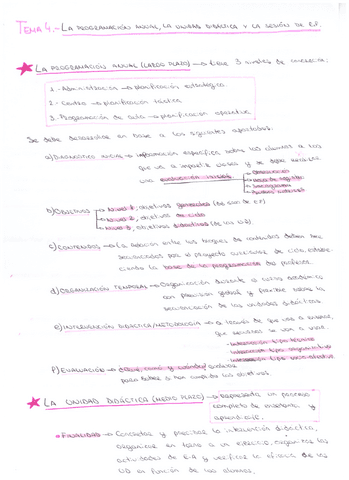 TEMA 4.- LA PROGRAMACIÓN ANUAL, LA UNIDAD DIDÁCTICA Y LA SESIÓN DE E.F.
LA PROGRAMACIÓN ANUAL (LARGO PLAZO) → tiene 3 niveles de concreción:
1 - Administración → planificación estratégica.
2 - Centro → planificación táctica.
3 - Programación de aula → planificación operativa.
Se debe desarrollar en base a los siguientes apartados:
a) DIAGNÓSTICO INICIAL → información específica sobre los alumnos a los
que va a impartir clases y se debe realizar
una evaluación inicial
Observación
Hojas de registro
Sociograma
b) OBJETIVOS
Nivel 1, objetivos generales (de
Nivel 2, objetivos de ciclo
Nivel 3, objetivos didácticos (de las UD).
c) CONTENIDOS → La relación entre los bloques de contenidos deben ser
secuenciados por el proyecto curricular de ciclo, estable-
ciendo la base de la programación del profesor.
d) ORGANIZACIÓN TEMPORAL → Organización durante el curso académico
con precisión global y flexible sobre la
secuenciación de las unidades didácticas.
e) INTERVENCIÓN DIDÁCTICA/METODOLOGÍA → a través de qué vas a enseñar,
qué recursos se van a usar.
Interacción tipo técnico
Interacción tipo
Interacción tipo socio-afectivo
f) EVALUACIÓN → ¿Qué, cómo y cuándo? evaluar
para saber si han cumplido los objetivos.
LA UNIDAD DIDÁCTICA (MEDIO PLAZO) → Representa un proceso
completo de enseñanza y
aprendizaje.
FINALIDAD → Concretar y precisar la intervención didáctica,
organizar en torno a un ejercicio, organizar las
actividades de E-A y verificar la eficacia de las
UD en función de los alumnos.